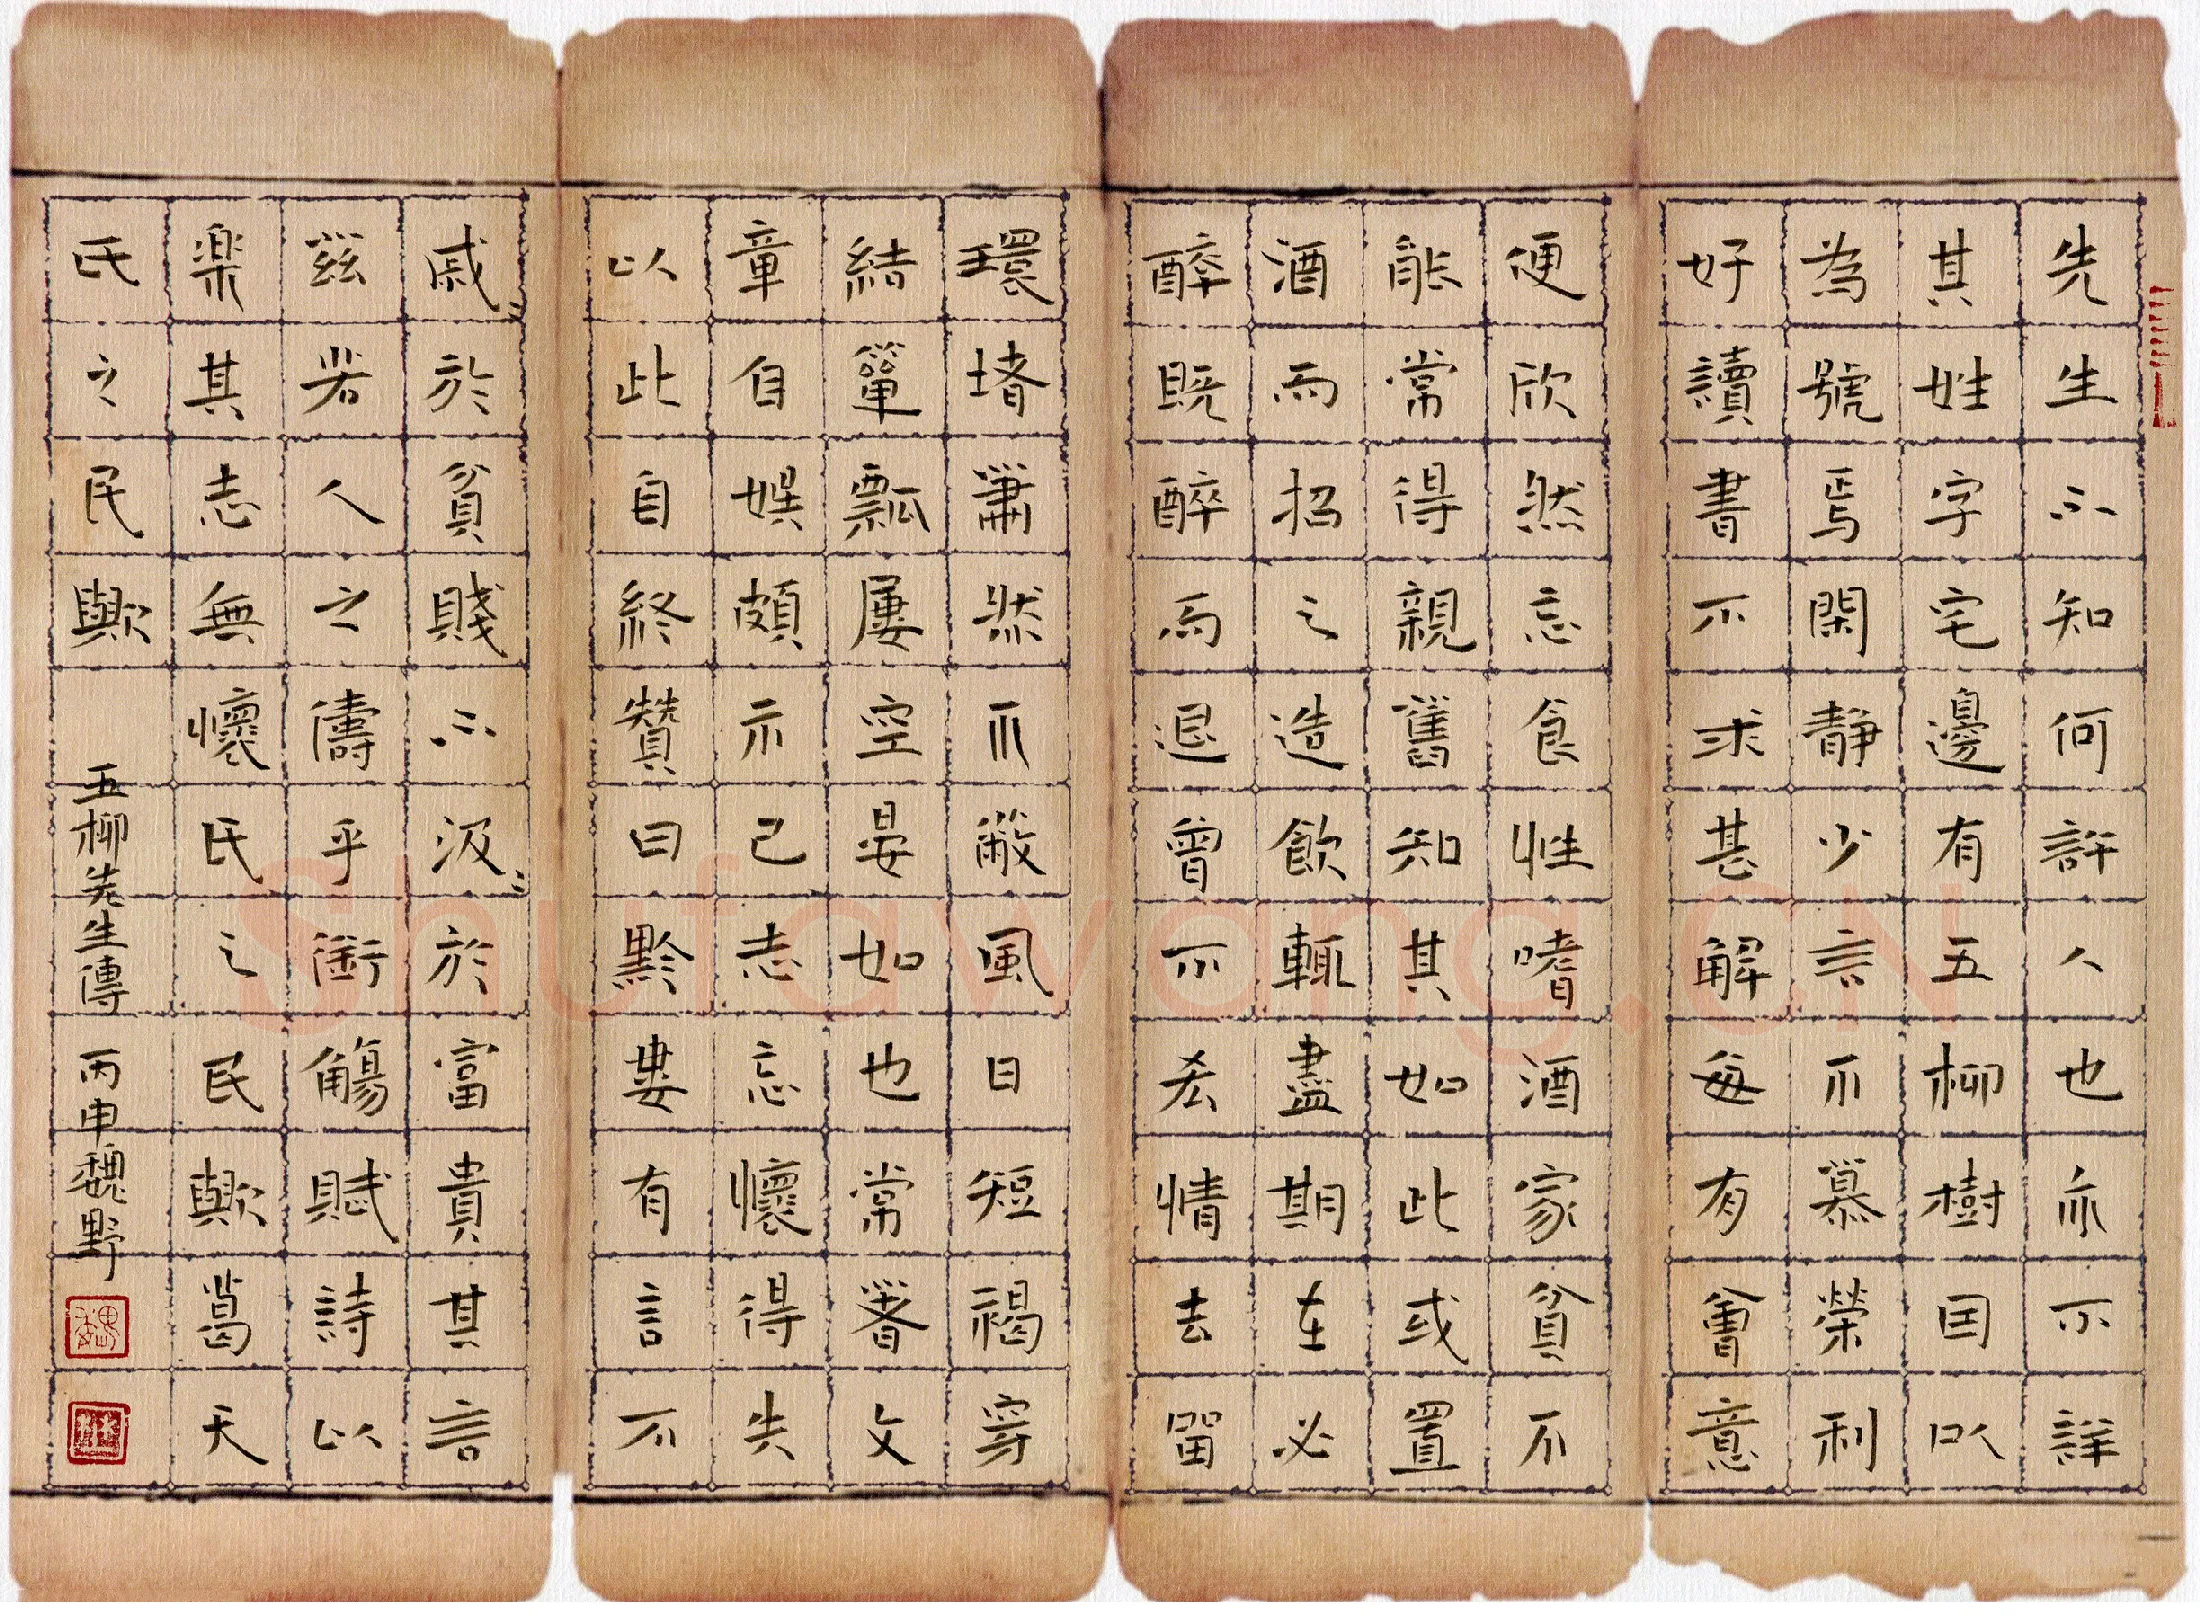 先生不知何許人也亦不詳
其姓字宅邊有五柳樹因以
為號焉閑靜少言不慕榮利
好讀書不求甚解每有會意
便欣然忘食性嗜酒家貧不
能常得親舊知其如此或置
酒而招之造飲輒盡期在必
醉既醉而退曾不吝情去留
環堵蕭然不蔽風日短褐穿
結簞瓢屢空晏如也常著文
章自娛頗示己志忘懷得失
以此自終贊曰黔婁有言不
戚〻於貧賤不汲〻於富貴其言
茲若人之儔乎銜觴賦詩以
樂其志無懷氏之民歟葛天
氏之民歟
五柳先生傳 丙申魏野
Shufawang.CN